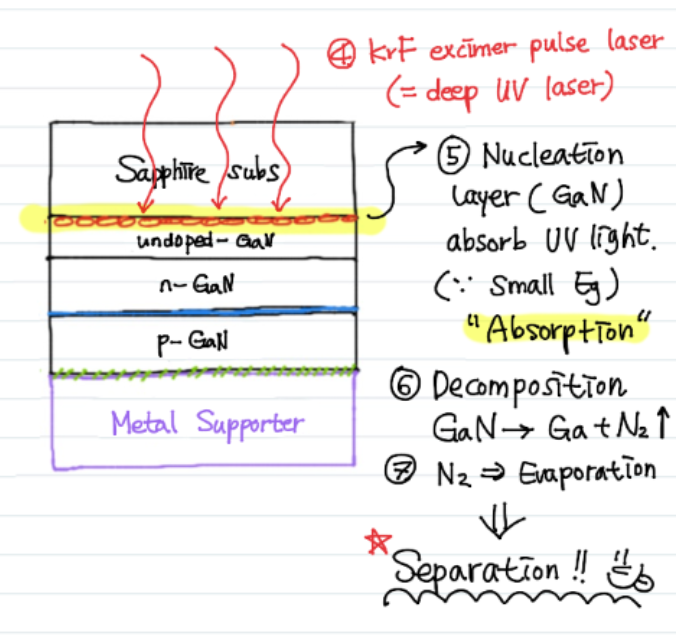 ④ KrF excimer pulse laser
(= deep UV laser)
Sapphire subs
undoped-GaN
n-GaN
p-GaN
Metal Supporter
⑤ Nucleation
layer (GaN)
absorb UV light.
(∵ small Eg)
"Absorption"
⑥ Decomposition
GaN → Ga + N₂ ↑
⑦ N₂ ⇒ Evaporation
⇓
☆ Separation !!